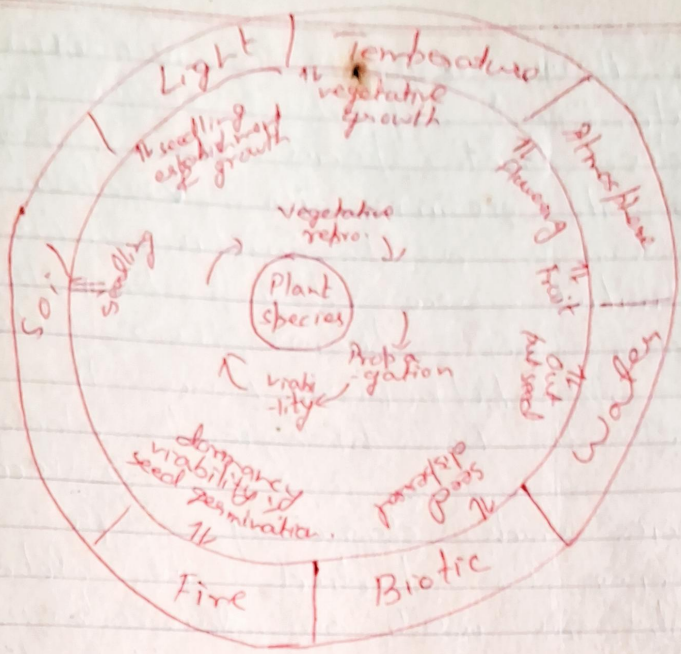 Light
Temperature
Atmosphere
Water
Biotic
Fire
Soil
vegetative
growth
flowering
Fruit
out
put seed
seed
dispersal
dormancy
viability &
seed germination.
seedling
seedling
establishment
& growth
vegetative
repro.
Propa
-gation
viabi
-lity
Plant
species